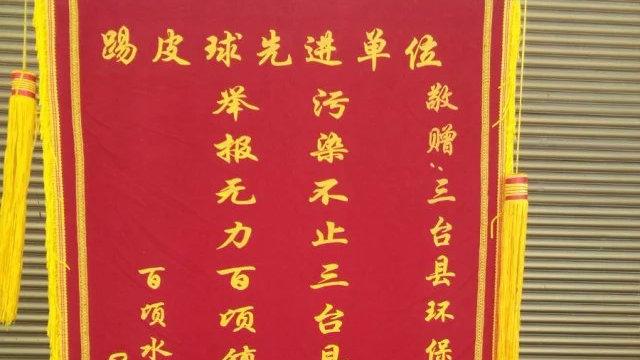 踢皮球先进单位
敬赠:三台县环保
污染不止三台县
举报无力百顷镇
百顷水